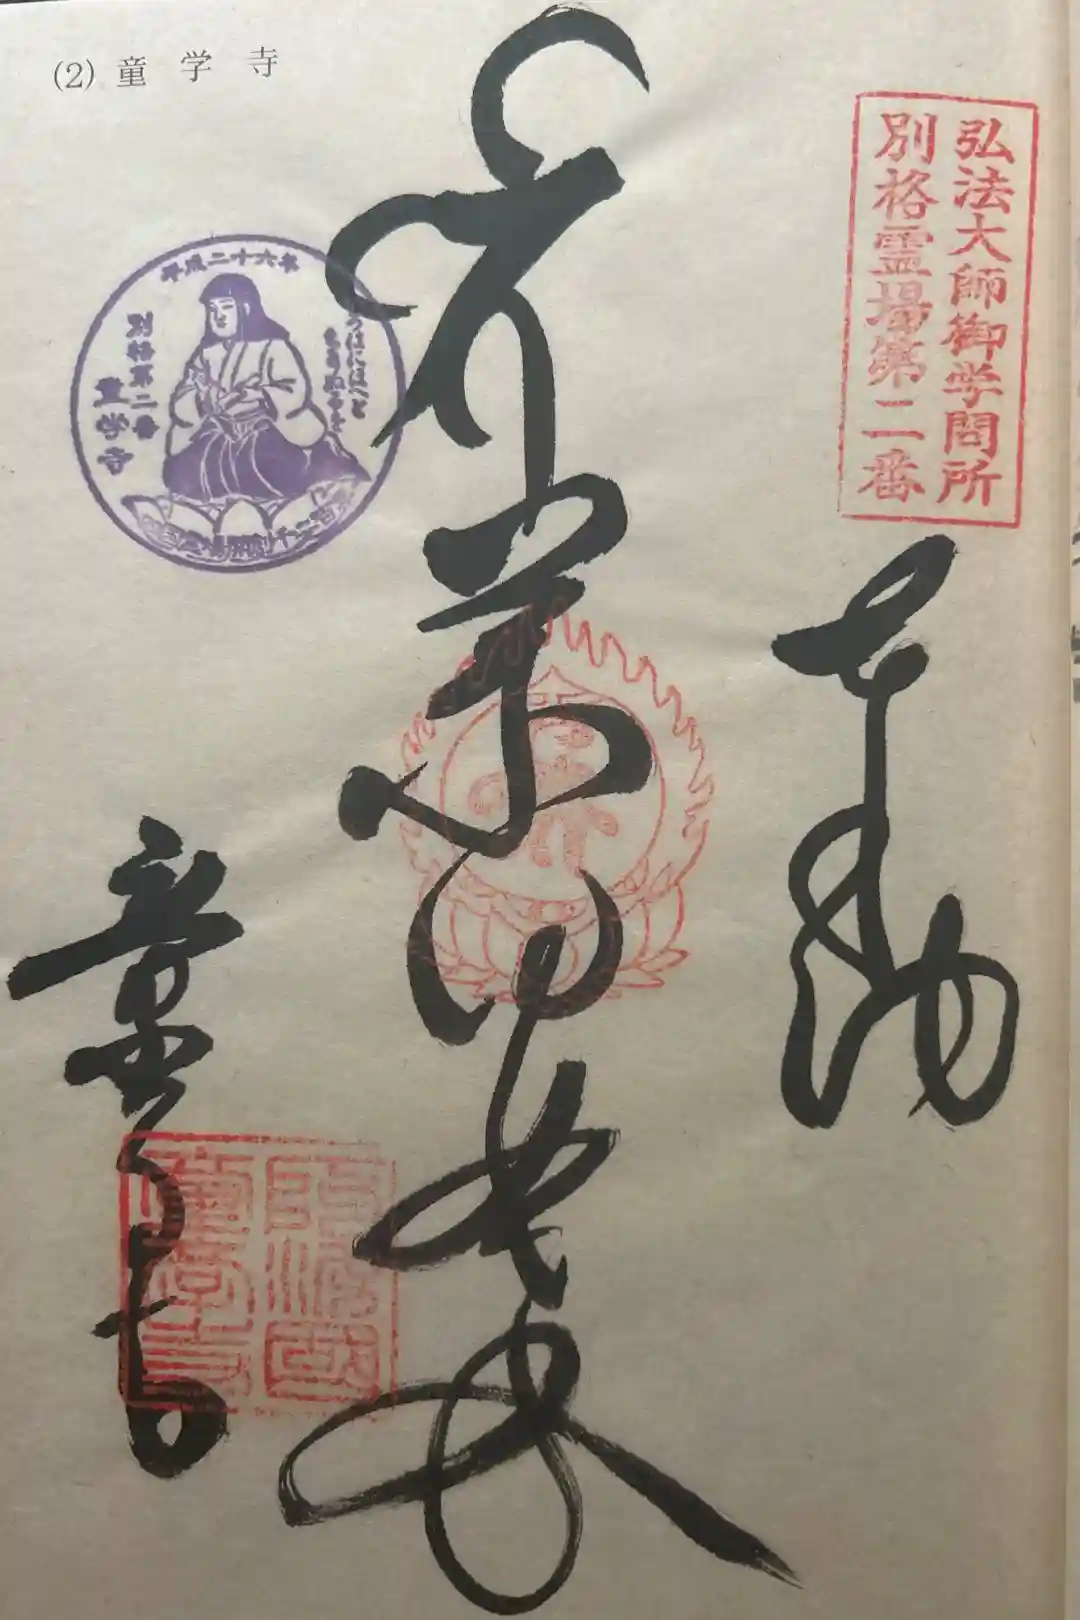 (2) 童学寺
弘法大師御学問所
別格霊場第二番
奉納
平成二十六年
いろはにほへと
別格第二番
童学寺
薬師如来
童学寺
阿波国
童学寺